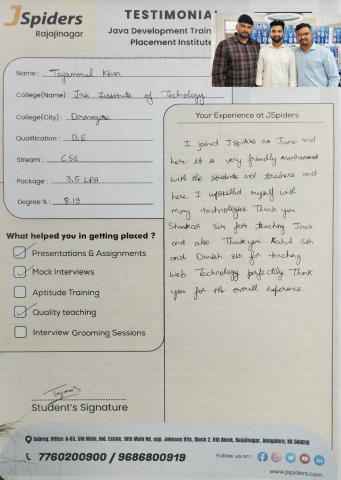 JSpiders
Rajajinagar
TESTIMONIAL
Java Development Train
Placement Institute
Name : Tajammul Khan
College(Name) : Jain Institute of Technology
College(City) : Davanagere
Qualification : B.E
Stream : CSE
Package : 3.5 LPA
Degree % : 8.19
What helped you in getting placed ?
Presentations & Assignments
Mock Interviews
Aptitude Training
Quality teaching
Interview Grooming Sessions
Student's Signature
Your Experience at JSpiders
I joined Jspiders on June and
here it is very friendly environment
with the students and trainers and
here I upskilled myself with
many technologies Thank you
Shankar sir for teaching Java
and also Thank you Rahul Sir
and Danish sir for teaching
Web Technology perfectly. Thank
you for the overall experience.
Subreg. Office: A-63, 5th Main, Ind. Estate, 10th Main Rd, opp. Johnson lifts, Block 2, 6th Block, Rajajinagar, Bengaluru, KA 560010
7760200900 / 9686800919
Follow us on :
www.jspiders.com